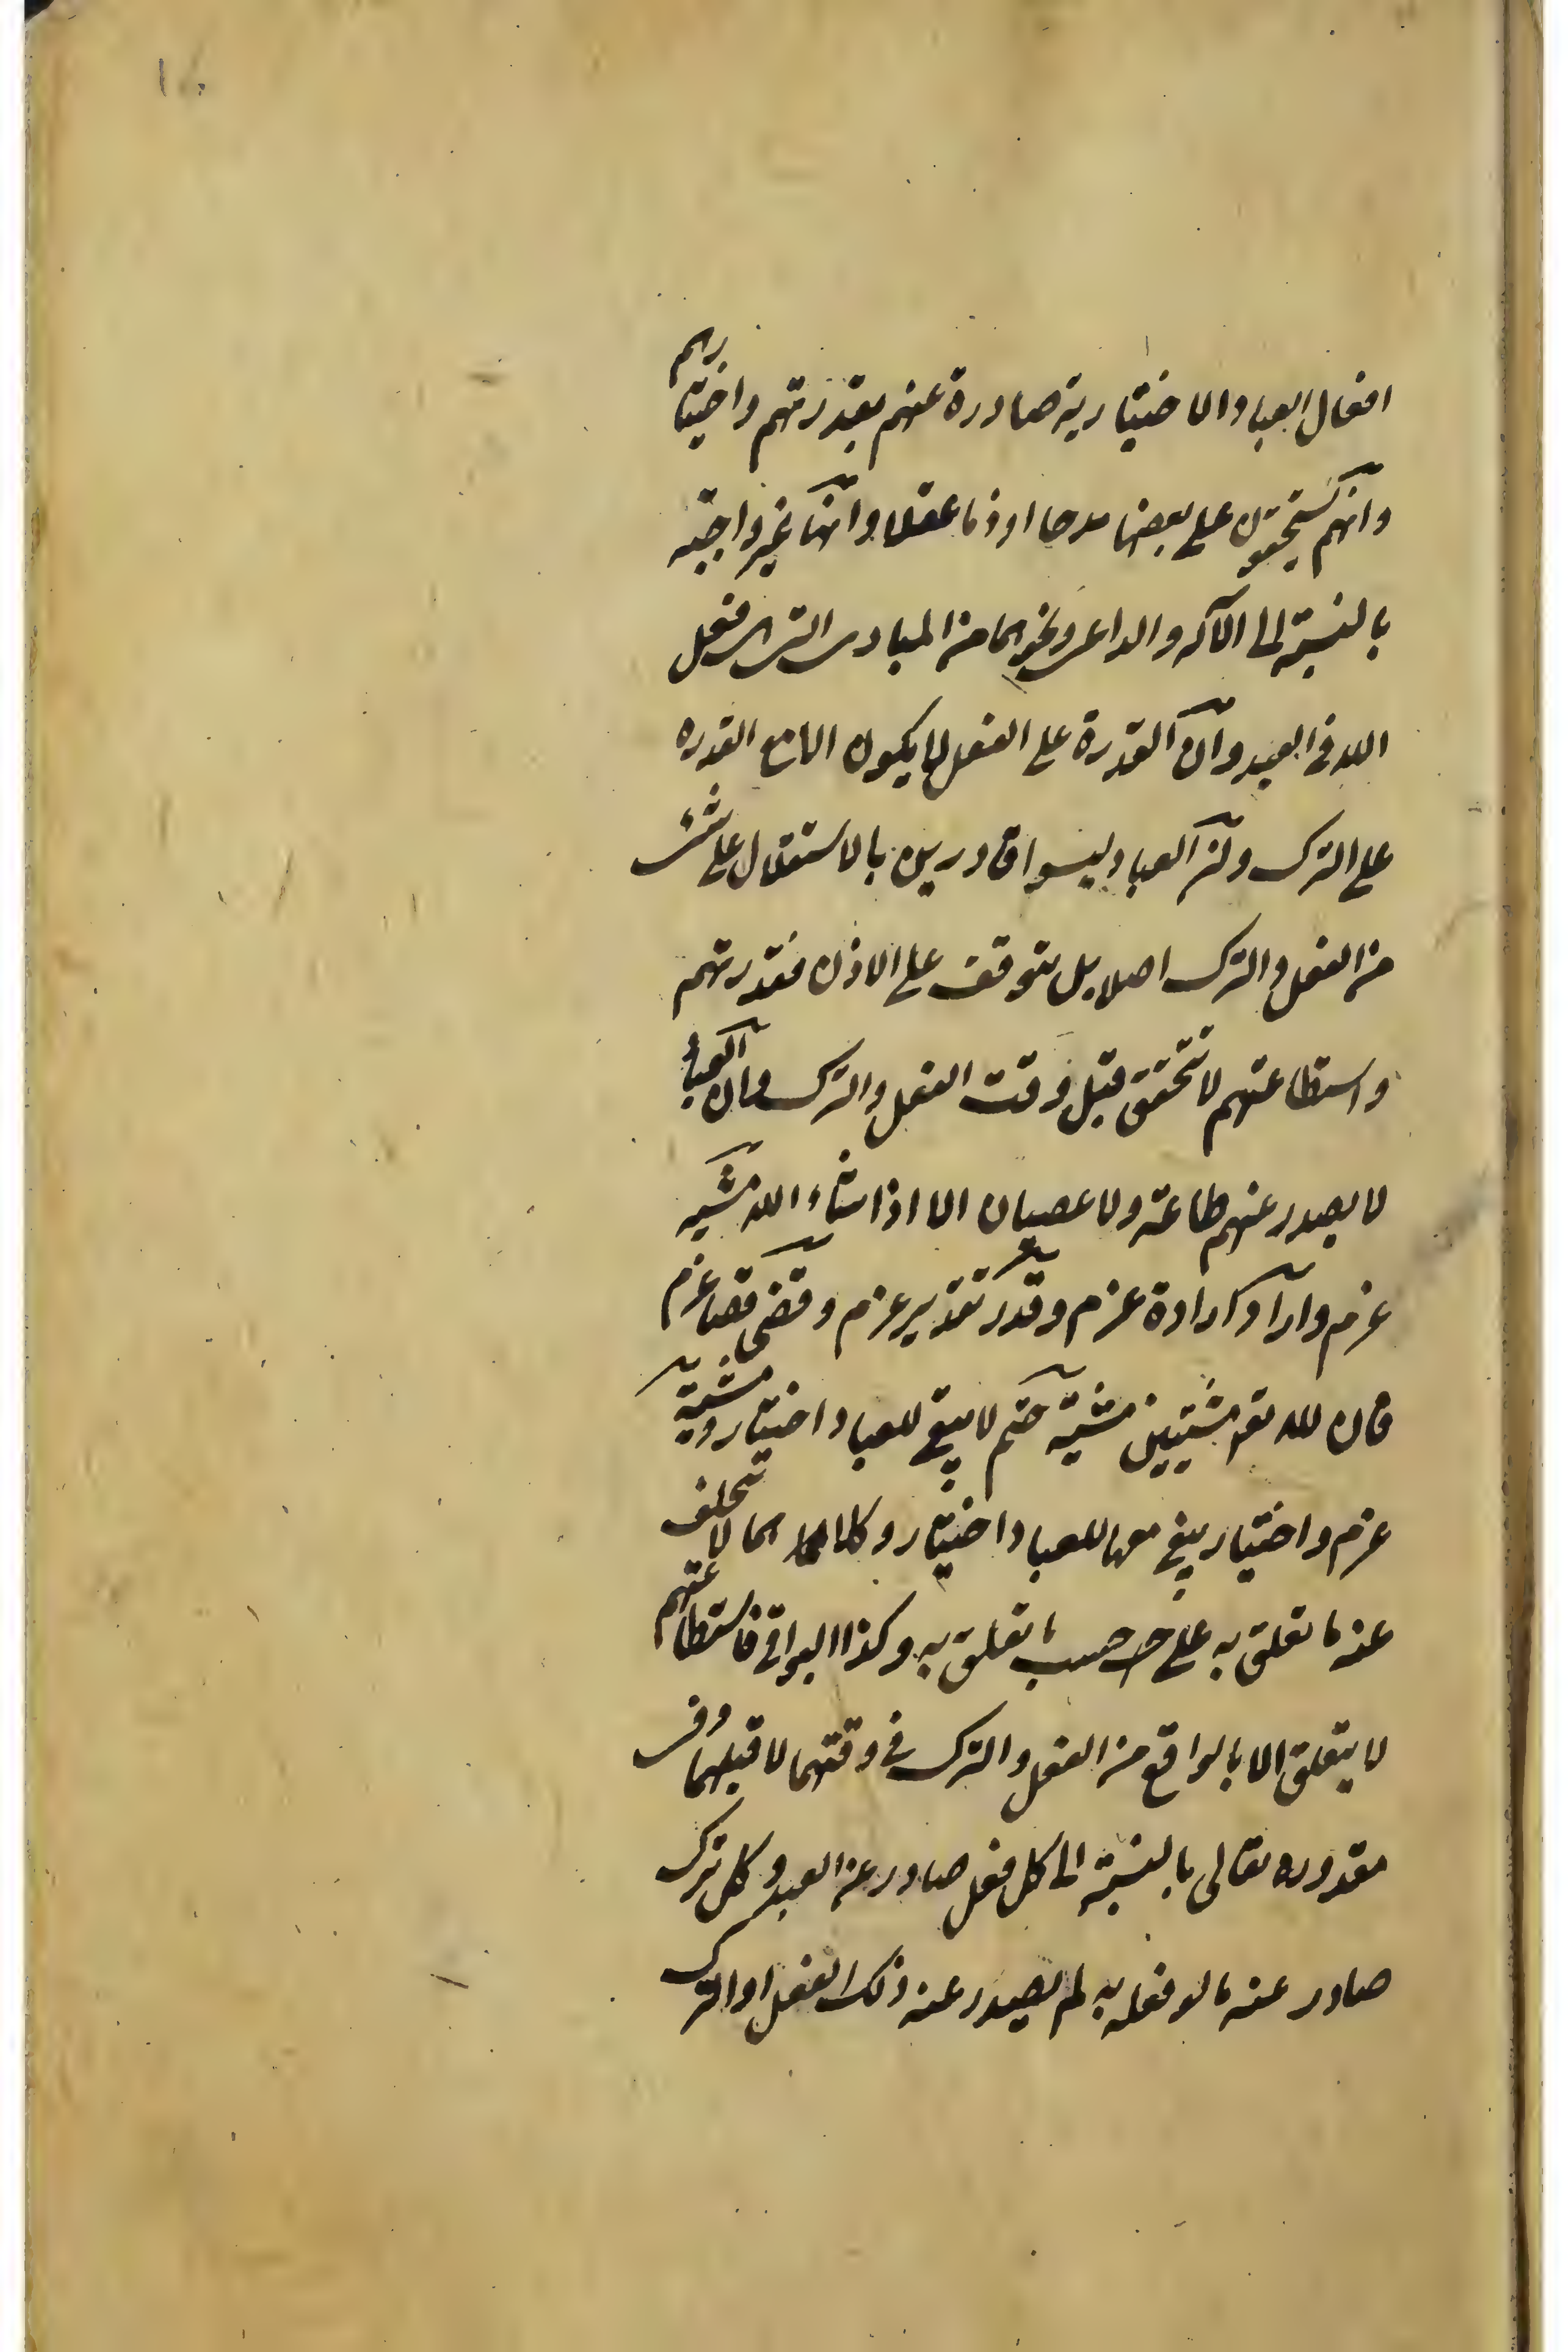 افعال العباد الاختيارية صادرة عنهم بقدرتهم واختيارهم
وانهم يستحقون على بعضها مدحا او ذما عقلا وانها غير واجبة
بالنسبة الى الآلة والداعى ونحوهما من المبادى التى هى فعل
الله فى العبد وان القدرة على الفعل لا يكون الا مع القدره
على الترك وان العباد ليسوا قادرين بالاستقلال على شئ
من الفعل والترك اصلا بل يتوقف على الاذن فقدرتهم
واستطاعتهم لا تتحقق قبل وقت الفعل والترك وان العباد
لا يصدر عنهم طاعة ولا عصيان الا اذا شاء الله مشية
عزم واراد ارادة عزم وقدر تقدير عزم وقضى قضا عزم
فان لله تعـ مشيتين مشية حتم لا يبقى للعباد اختيار ومشية
عزم واختيار يبقى معها للعباد اختيار وكلاهما لا يتخلف
عنه ما تعلق به على حسب ما تعلق به وكذا البواقى فاستطاعتهم
لا يتعلق الا بالواقع من الفعل والترك فى وقتهما لا قبلهما وفى
مقدوره تعالى بالنسبة الى كل فعل صادر عن العبد وكل ترك
صادر عنه ما لو فعله به لم يصدر عنه ذلك الفعل او الترك